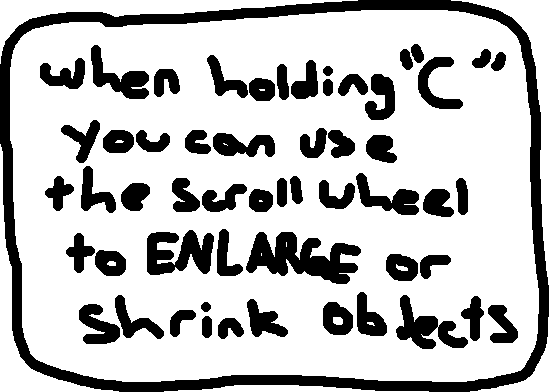 when holding "C"
you can use
the scroll wheel
to ENLARGE or
shrink objects